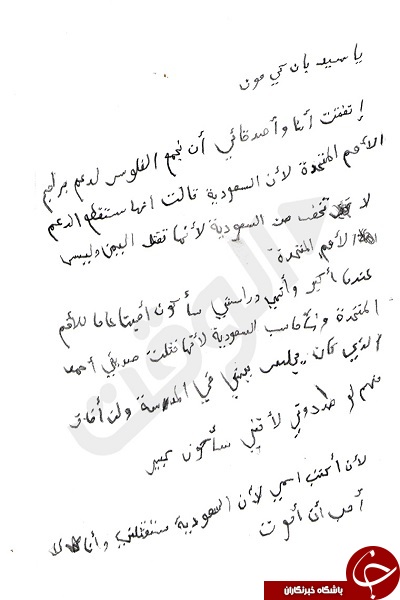 يا سيد بان كي مون
إتفقت أنا وأصدقائي أن نجمع الفلوس لدعم برامج
الأمم المتحدة لأن السعودية قالت انها ستقطع الدعم
لا تخف من السعودية لأنها تقتل اليمن وليس
الأمم المتحدة
عندما أكبر وأنهي دراستي سأكون أمينا عاما للأمم
المتحدة وسأحاسب السعودية لأنها قتلت صديقي أحمد
الذي كان يجلس بجنبي في المدرسة ولن أخاف
منهم لو هددوني لأنني سأكون كبير
لن أكتب اسمي لأن السعودية ستقتلني وأنا لا
أحب أن أموت
الوقت
باشگاه خبرنگاران